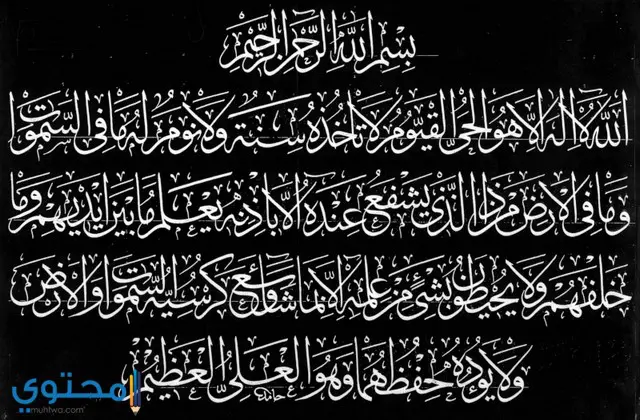 بسم الله الرحمن الرحيم
الله لا إله إلا هو الحي القيوم لا تأخذه سنة ولا نوم له ما في السموات
وما في الأرض من ذا الذي يشفع عنده إلا بإذنه يعلم ما بين أيديهم وما
خلفهم ولا يحيطون بشيء من علمه إلا بما شاء وسع كرسيه السموات والأرض
ولا يؤده حفظهما وهو العلي العظيم
محتوي
muhtwa.com